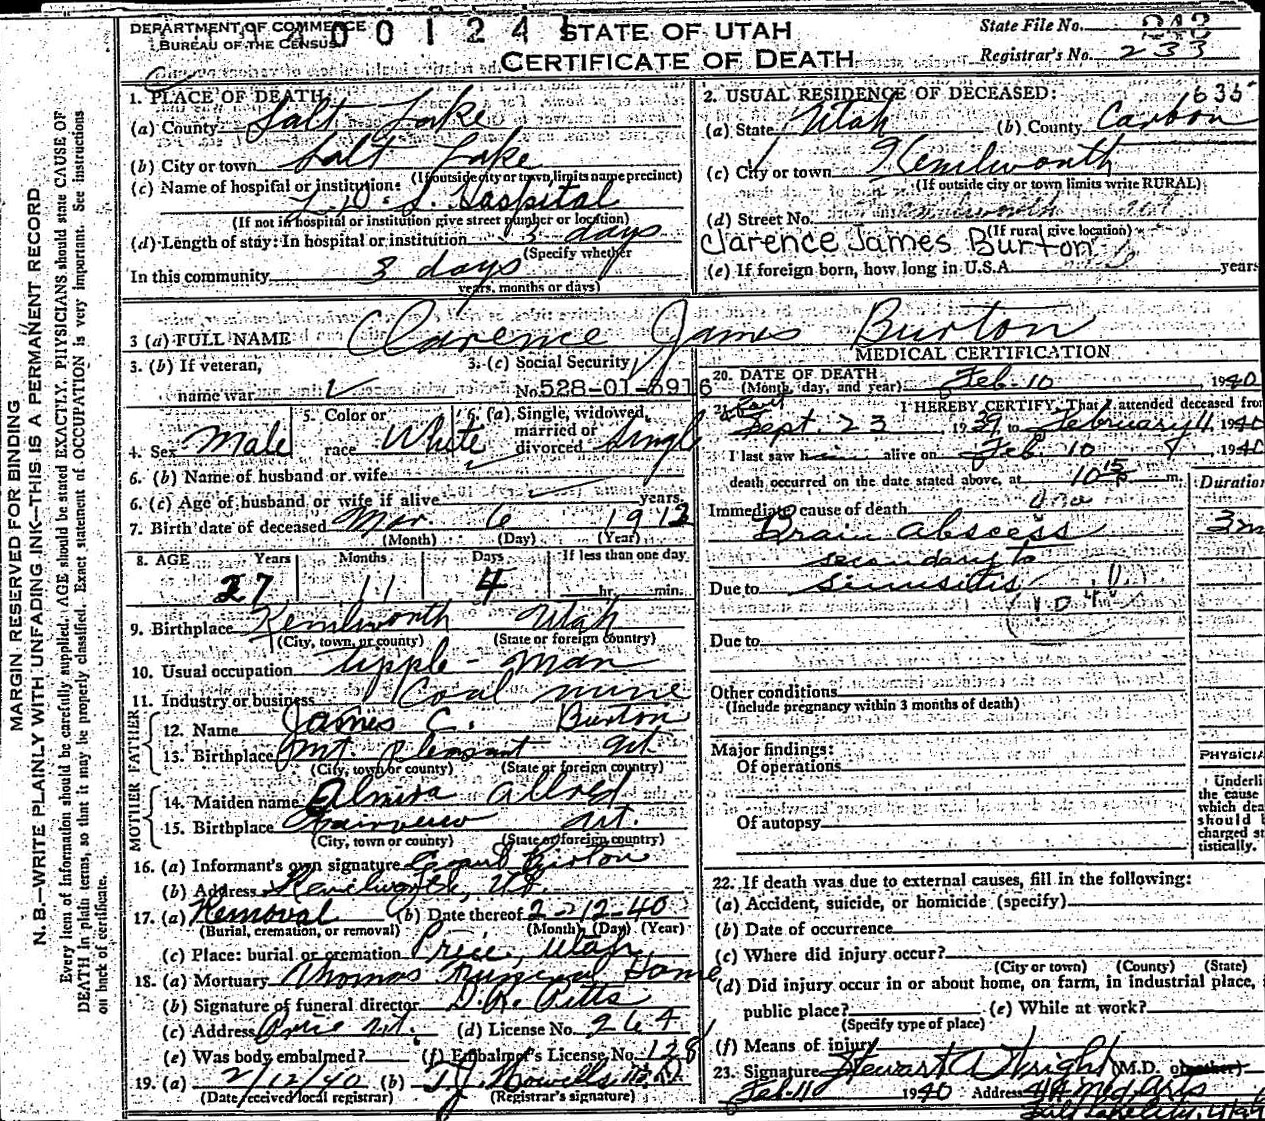 DEPARTMENT OF COMMERCE
BUREAU OF THE CENSUS
00124
STATE OF UTAH
CERTIFICATE OF DEATH
State File No.
Registrar's No. 233
MARGIN RESERVED FOR BINDING
N. B.—WRITE PLAINLY WITH UNFADING INK—THIS IS A PERMANENT RECORD
Every item of information should be carefully supplied. AGE should be stated EXACTLY. PHYSICIANS should state CAUSE OF
DEATH in plain terms, so that it may be properly classified. Exact statement of OCCUPATION is very important. See instructions
on back of certificate.
1. PLACE OF DEATH:
(a) County Salt Lake
(b) City or town Salt Lake
(If outside city or town limits name precinct)
(c) Name of hospital or institution:
L. D. S. Hospital
(If not in hospital or institution give street number or location)
(d) Length of stay: In hospital or institution 3 days
(Specify whether
In this community 3 days
years, months or days)
2. USUAL RESIDENCE OF DECEASED: 1635
(a) State Utah (b) County Carbon
(c) City or town Kenilworth
(If outside city or town limits write RURAL)
(d) Street No. Kenilworth Ut
(If rural give location)
Clarence James Burton
(e) If foreign born, how long in U.S.A. years
3 (a) FULL NAME Clarence James Burton
3. (b) If veteran,
name war
3. (c) Social Security
No. 528-01-6916
4. Sex Male
5. Color or
race White
6. (a) Single, widowed,
married or
divorced Single
6. (b) Name of husband or wife
6 (c) Age of husband or wife if alive years
7. Birth date of deceased Mar. 6 1912
(Month) (Day) (Year)
8. AGE Years Months Days If less than one day
27 11 4 hr. min.
9. Birthplace Kenilworth Utah
(City, town, or county) (State or foreign country)
10. Usual occupation Tipple-man
11. Industry or business Coal mine
FATHER
12. Name James C. Burton
13. Birthplace Mt. Pleasant Ut
(City, town or county) (State or foreign country)
MOTHER
14. Maiden name Almira Allred
15. Birthplace Fairview Ut.
(City, town or county) (State or foreign country)
16. (a) Informant's own signature Grant Burton
(b) Address Kenilworth, Ut.
17. (a) Removal (b) Date thereof 2-12-40
(Burial, cremation, or removal) (Month) (Day) (Year)
(c) Place: burial or cremation Price, Utah
18. (a) Mortuary Thomas Funeral Home
(b) Signature of funeral director D. R. Pitts
(c) Address Price Ut. (d) License No. 264
(e) Was body embalmed? (f) Embalmer's License No. 128
19. (a) 2/12/40 (b) T. J. Howells M.D.
(Date received local registrar) (Registrar's signature)
MEDICAL CERTIFICATION
20. DATE OF DEATH
(Month, day, and year) Feb. 10 1940
I HEREBY CERTIFY, That I attended deceased from
Sept. 23 1939 to February 11, 1940
I last saw him alive on Feb. 10, 1940
death occurred on the date stated above, at 10 15 p m.
Duration
Immediate cause of death
Brain abscess 3m
secondary to
Due to sinusitis
Due to
Other conditions
(Include pregnancy within 3 months of death)
Major findings:
Of operations
Of autopsy
PHYSICIA
Underli
the cause
which dea
should b
charged st
tistically.
22. If death was due to external causes, fill in the following:
(a) Accident, suicide, or homicide (specify)
(b) Date of occurrence
(c) Where did injury occur?
(City or town) (County) (State)
(d) Did injury occur in or about home, on farm, in industrial place, i
public place? (e) While at work?
(Specify type of place)
(f) Means of injury
23. Signature Stewart A Wright (M.D. or other)
Feb-11 1940 Address Med. Arts
Salt Lake City, Utah